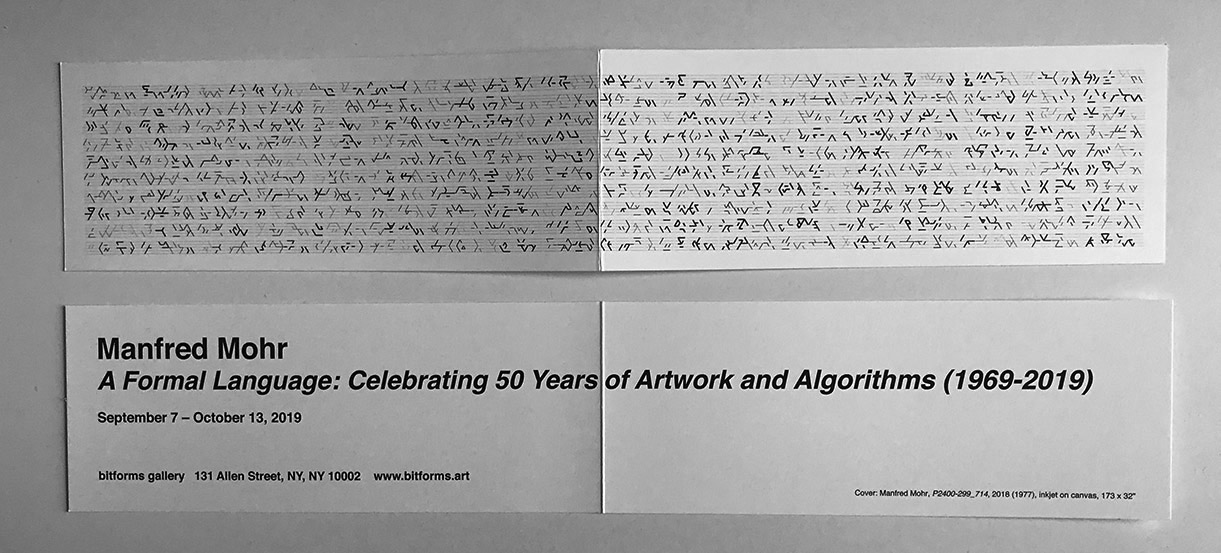 Manfred Mohr
A Formal Language: Celebrating 50 Years of Artwork and Algorithms (1969-2019)
September 7 – October 13, 2019
bitforms gallery 131 Allen Street, NY, NY 10002 www.bitforms.art
Cover: Manfred Mohr, P2400-299_714, 2018 (1977), inkjet on canvas, 173 x 32"